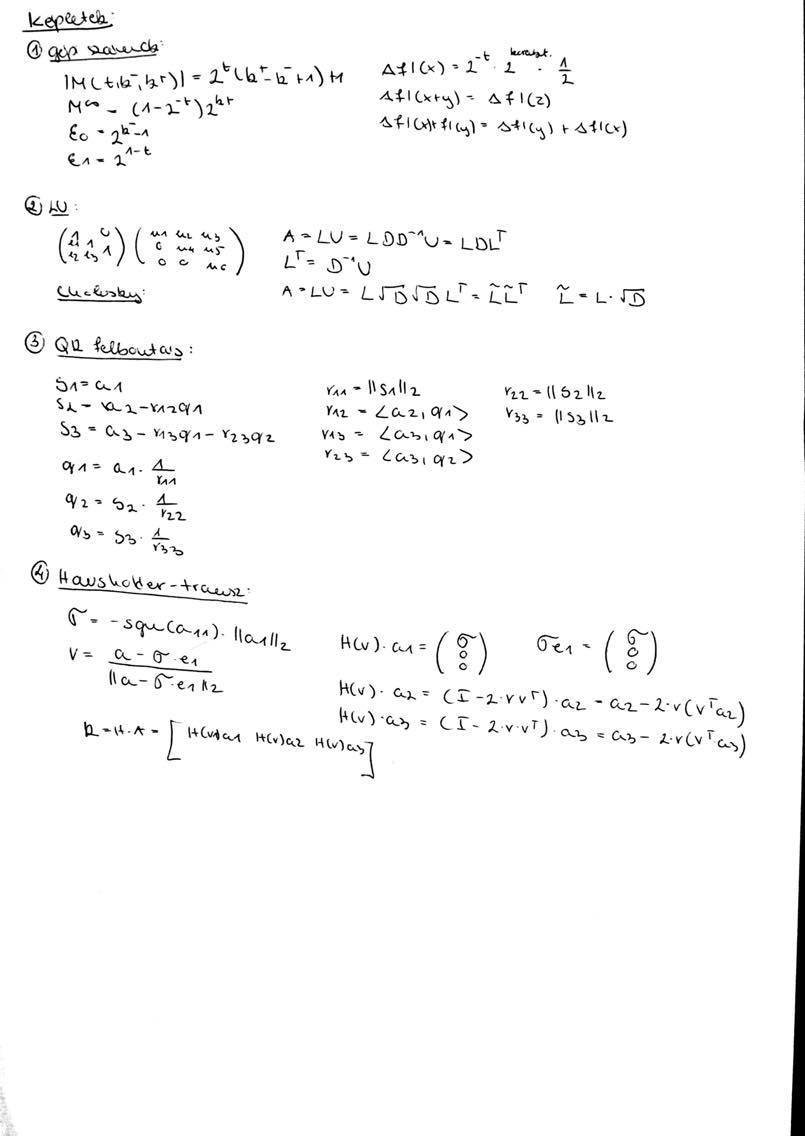 Képletek:
① gépi számok:
|M(t,k⁻,k⁺)| = 2^t (k⁺-k⁻+1)+1
M∞ = (1-2^-t) 2^k+
ε0 = 2^k⁻-1
ε1 = 2^1-t
Δfl(x) = 2^-t · 2 · 1/2
Δfl(x+y) = Δfl(z)
Δfl(x)+fl(y) = Δfl(y) + Δfl(x)
② LU:
(1 0
l1 1
l2 l3 1) (u1 u2 u3
0 u4 u5
0 0 u6)
A = LU = LDD⁻¹U = LDL^T
L^T = D⁻¹U
Cholesky:
A = LU = L√D√D L^T = L̃L̃^T L̃ = L·√D
③ QR felbontás:
S1 = a1
S2 = a2-r12q1
S3 = a3 - r13q1 - r23q2
q1 = a1 · 1/r11
q2 = S2 · 1/r22
q3 = S3 · 1/r33
r11 = ||S1||2
r12 = <a2, q1>
r13 = <a3, q1>
r23 = <a3, q2>
r22 = ||S2||2
r33 = ||S3||2
④ Housholder-transz:
σ = -sgn(a11) · ||a1||2
v = a - σ·e1 / ||a-σ·e1||2
H(v)·a1 = (σ 0 0) σe1 = (σ 0 0)
H(v)·a2 = (I-2·vv^T)·a2 = a2-2·v(v^T a2)
H(v)·a3 = (I-2·v·v^T)·a3 = a3-2·v(v^T·a3)
R = H·A = [H(v)a1 H(v)a2 H(v)a3]